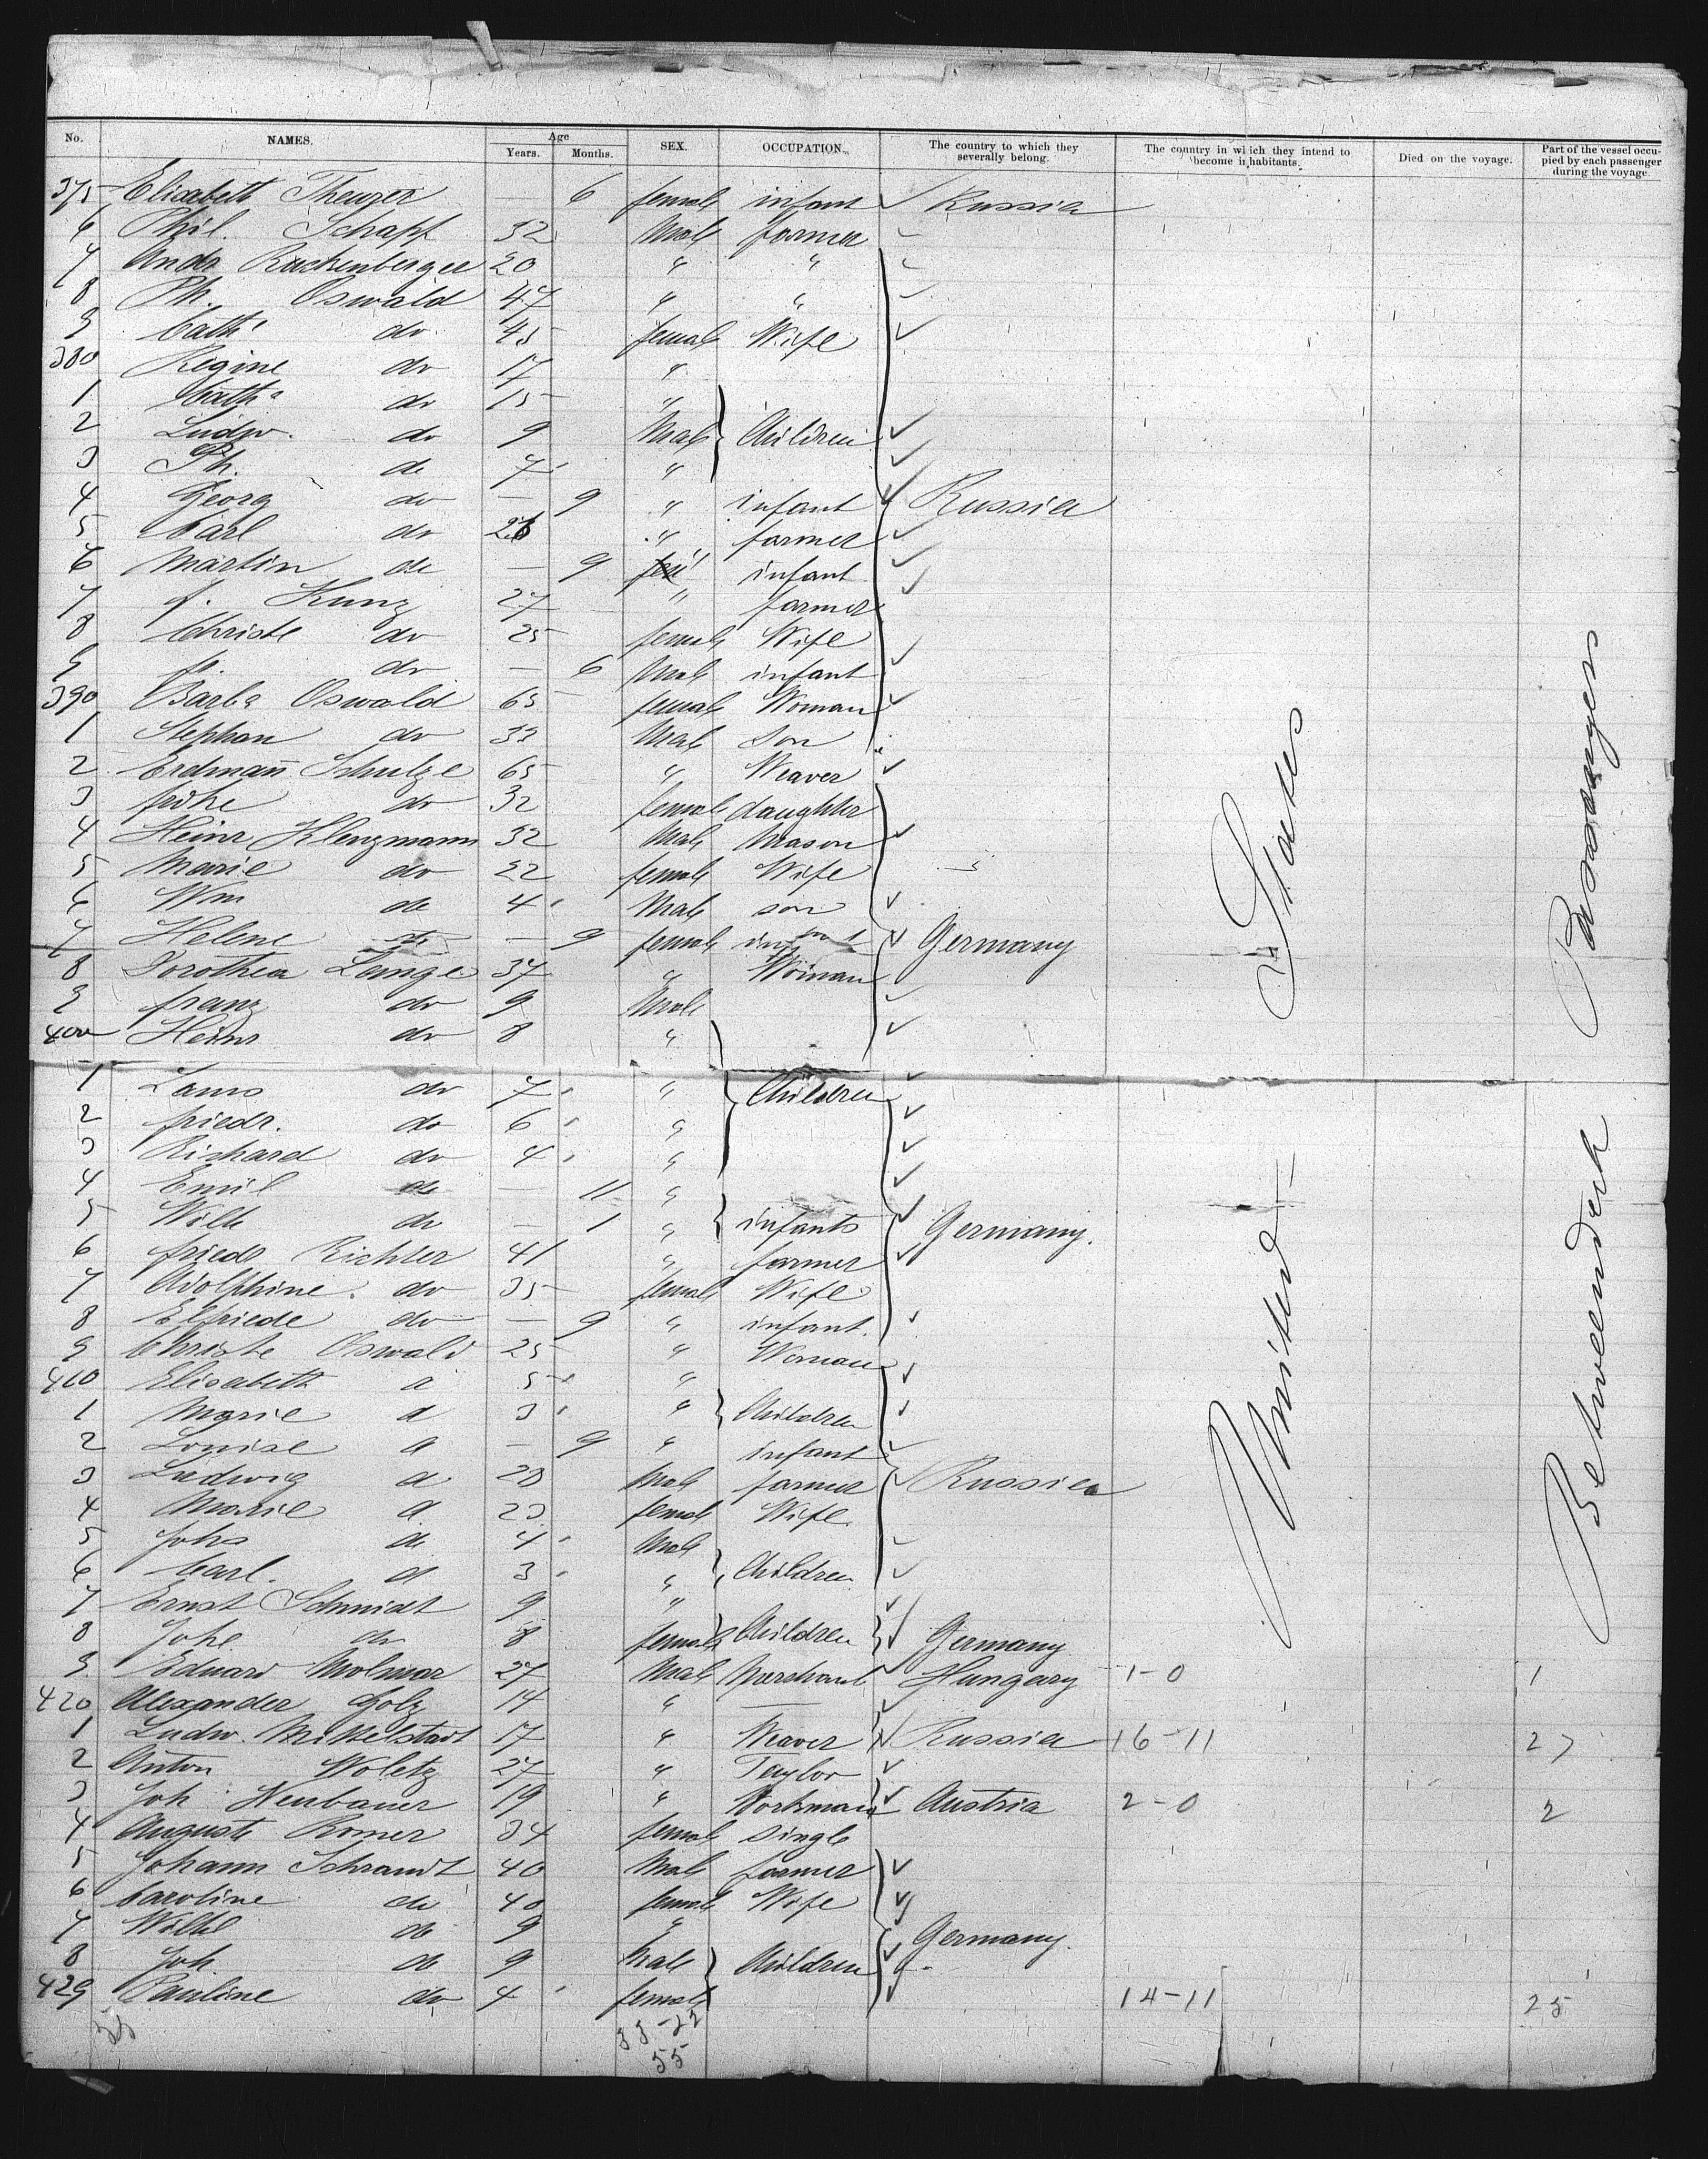 No. NAMES. Age Years. Months. SEX. OCCUPATION. The country to which they severally belong. The country in which they intend to become inhabitants. Died on the voyage. Part of the vessel occupied by each passenger during the voyage.
375 Elisabeth — 6 female infant Russia
6 Phil. Schapf 32 Male farmer
7 Andr Ruchenberger 20 " "
8 Ph. Oswald 47 " "
9 Cath. do 45 female Wife
380 Regine do 17 "
1 Cath. do 15 "
2 Ludw. do 9 Male Children
3 Ph. do 7 "
4 Georg do — 9 " infant Russia
5 Carl do " farmer
6 Martin do — 9 " infant
7 f. Kunz 27 " farmer
8 Christe do 25 female Wife
9 f. do — 6 Male infant
390 Barba Oswald 65 female Woman
1 Stephan do 33 Male son
2 Erdmann Schulze 65 " Weaver
3 do 32 female daughter
4 Heinr Klenzmann 32 Male Mason
5 Marie do 22 female Wife
6 Wm do 4 Male son
7 Helene do — 9 female infant Germany
8 Dorothea Lange 37 " Woman
9 franz do 9 Male
400 Heinr do 8 "
1 do 7 " Children
2 friedr. do 6 "
3 Richard do 4 "
4 Emil do — 11 "
5 Wilh do — 1 " infants Germany.
6 friedr Richter 41 " farmer
7 Adolphine do 35 female Wife
8 Elfriede do — 9 " infant.
9 Christe Oswald 25 " Woman
410 Elisabeth d 5 "
1 Marie d 3 " Children
2 Louise d — 9 " infant
3 Ludwig d 28 Male farmer Russia
4 Marie d 23 female Wife
5 Johs d 4 Male
6 Carl. d 3 " Children
7 Ernst Schmidt 9 "
8 Johe do 8 female Children Germany
9 Eduard Molnar 27 Male Merchant Hungary 1-0 1
420 Alexander Golz 14 " —
1 Ludw. Mittelstadt 17 " Weaver Russia 16-11 27
2 Anton Woletz 27 " Taylor
3 Joh Neubauer 19 " Workman Austria 2-0 2
4 Auguste Romer 34 female single
5 Johann Schrandt 40 Male farmer
6 Caroline do 40 female Wife
7 Wilhl do 9 " Germany.
8 Joh. do 9 Male Children
429 Pauline do 4 female 14-11 25
33-22
55
United States
Betweendeck Passangers